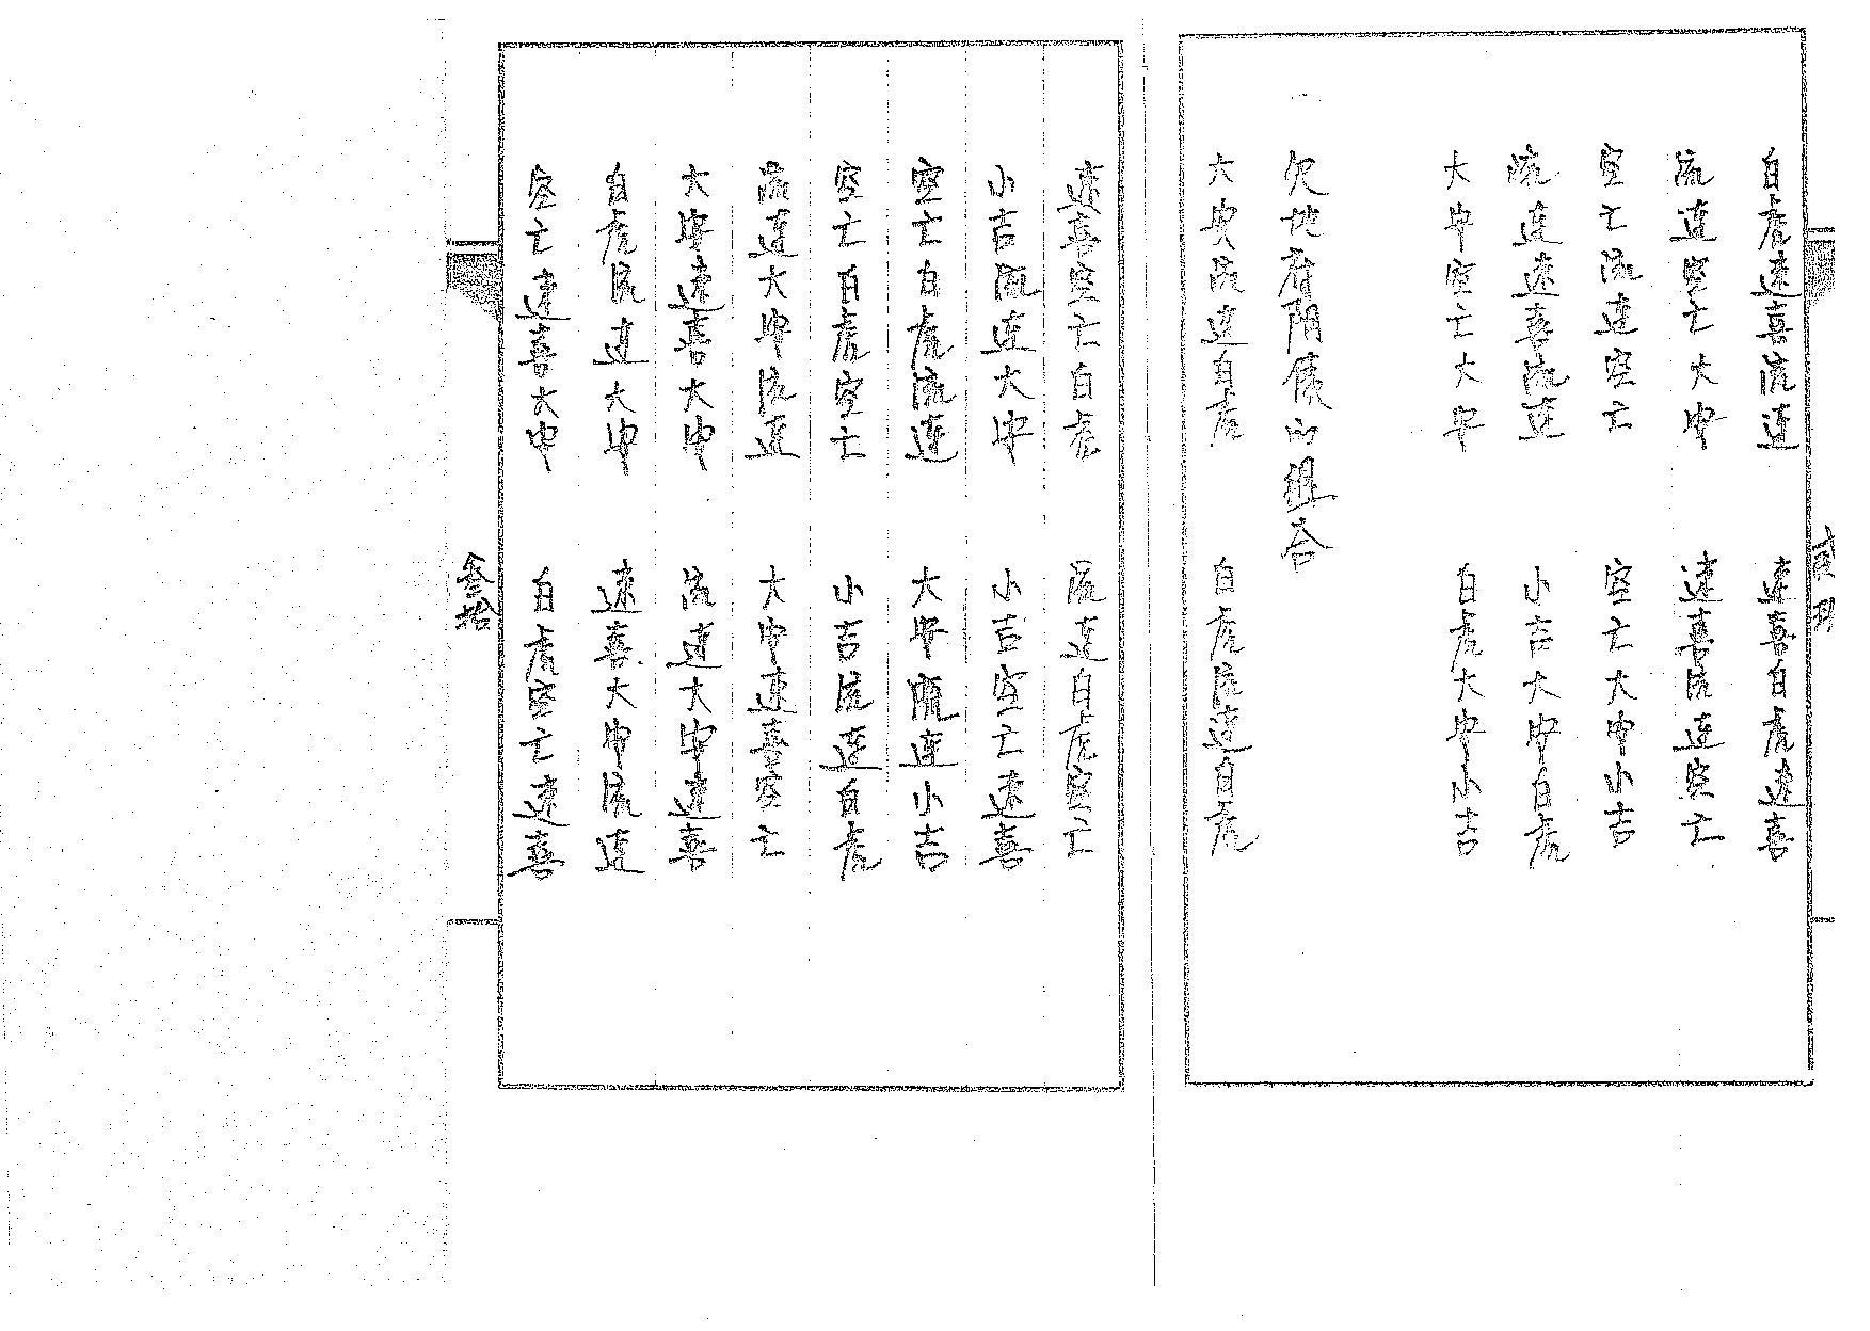 白虎速喜流連 速喜白虎速喜
流連空亡大安 速喜流連空亡
空亡流連空亡 空亡大安小吉
流連速喜流連 小吉大安白虎
大安空亡大安 白虎大安小吉
一 欠地府陰債的組合
大安流連白虎 白虎流連白虎
速喜空亡白虎 流連白虎空亡
小吉流連大安 小吉空亡速喜
空亡白虎流連 大安流連小吉
空亡白虎空亡 小吉流連白虎
流連大安流連 大安速喜空亡
大安速喜大安 流連大安速喜
白虎流連大安 速喜大安流連
空亡速喜大安 白虎空亡速喜
叁拾